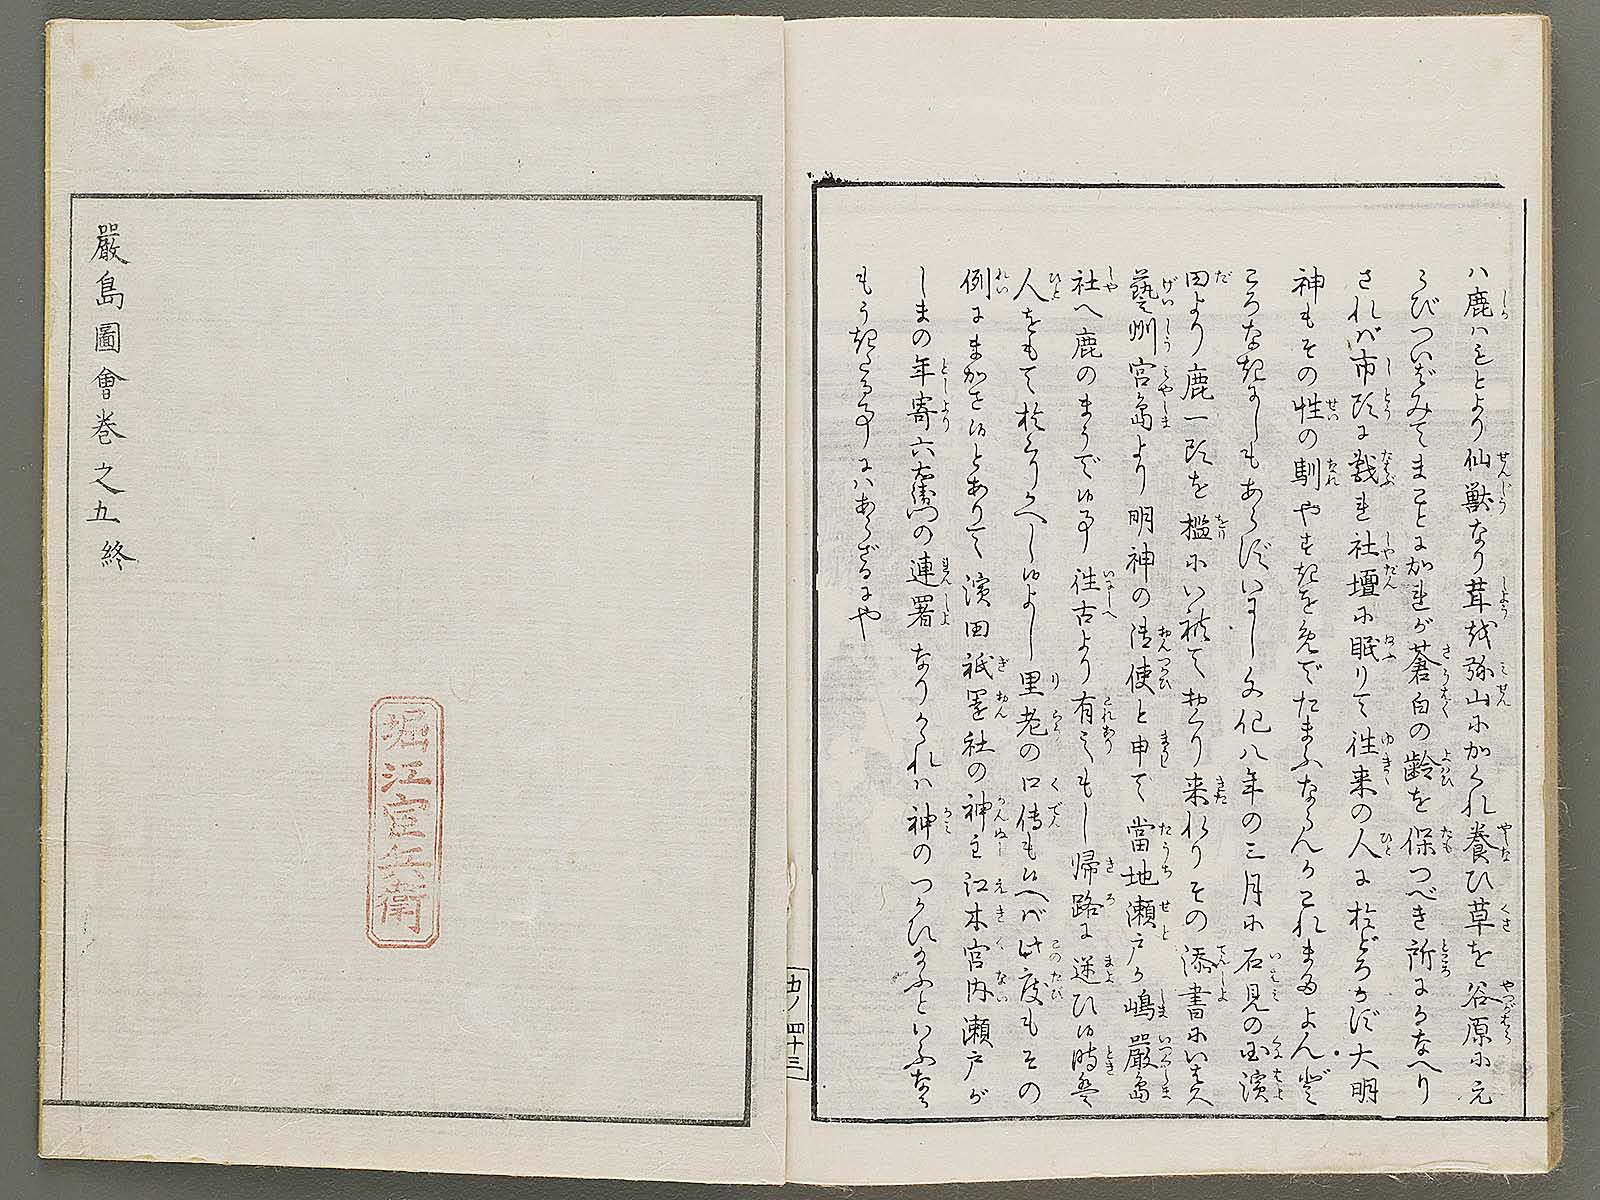 ハ鹿ハもとより仙獣なり茸を弥山にかくれ養ひ草を谷原にえ
らびついばみてまことにかれが蒼白の齢を保つべき所にるなへり
されバ市頭に戯れ社壇に眠りて往来の人におどろかず大明
神もその性の馴やすきを免でたまふならんかこれまたよんど
ころなきにしもあらずいにし文化八年の三月に石見の国濱
田より鹿一頭を檻にいれておくり来れりその添書にいはく
藝州宮島より明神の御使と申て當地瀬戸が嶋厳島
社へ鹿のまうで候事往古より有之もし帰路に迷ひ候時ハ
人をもておくりかへし候よし里老の口傳も候へバ此度もその
例にまかせ候とありて濱田祇園社の神主江木宮内瀬戸が
しまの年寄六右衛門の連署なりけれハ神のつかひ給ふといふなる
もうきたる事にハあらざるにや
五ノ四十三
嚴島圖會巻之五終
堀江官兵衛